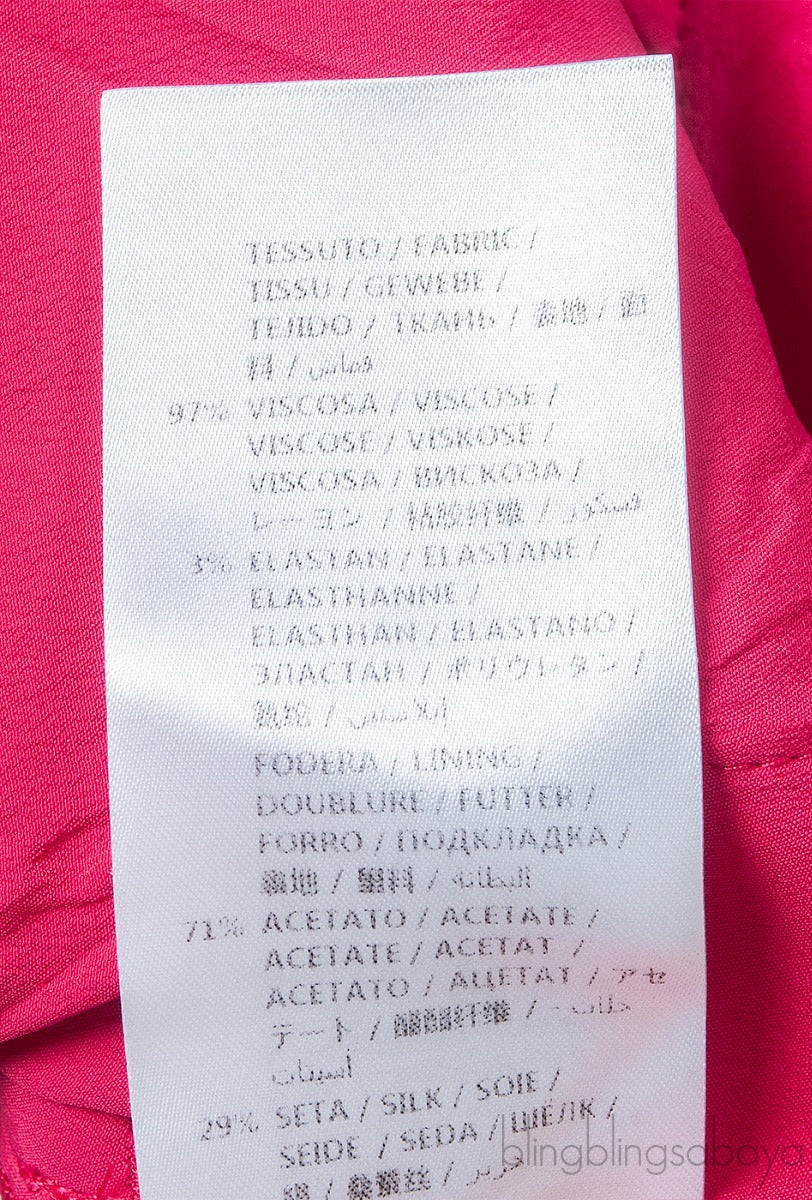 TESSUTO / FABRIC /
TISSU / GEWEBE /
TEJIDO / ТКАНЬ / 表地 / 面
料 / قماش
97% VISCOSA / VISCOSE /
VISCOSE / VISKOSE /
VISCOSA / ВИСКОЗА /
レーヨン / 粘胶纤维 / فسكوز
3% ELASTAN / ELASTANE /
ELASTHANNE /
ELASTHAN / ELASTANO /
ЭЛАСТАН / ポリウレタン /
氨纶 / إيلاستين
FODERA / LINING /
DOUBLURE / FUTTER /
FORRO / ПОДКЛАДКА /
裏地 / 里料 / البطانة
71% ACETATO / ACETATE /
ACETATE / ACETAT /
ACETATO / АЦЕТАТ / アセ
テート / 醋酯纤维 /
أسيتات
29% SETA / SILK / SOIE /
SEIDE / SEDA / ШЁЛК /
絹 / 桑蚕丝 / حرير
blingblingsabaya